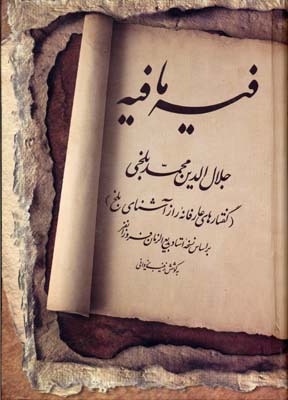 فیه ما فیه
جلال‌الدین محمد بلخی
(گفتارهای عارفانه راز آشنای بلخ)
بر اساس نسخه استاد بدیع الزمان فروزانفر
به کوشش زینب یزدانی